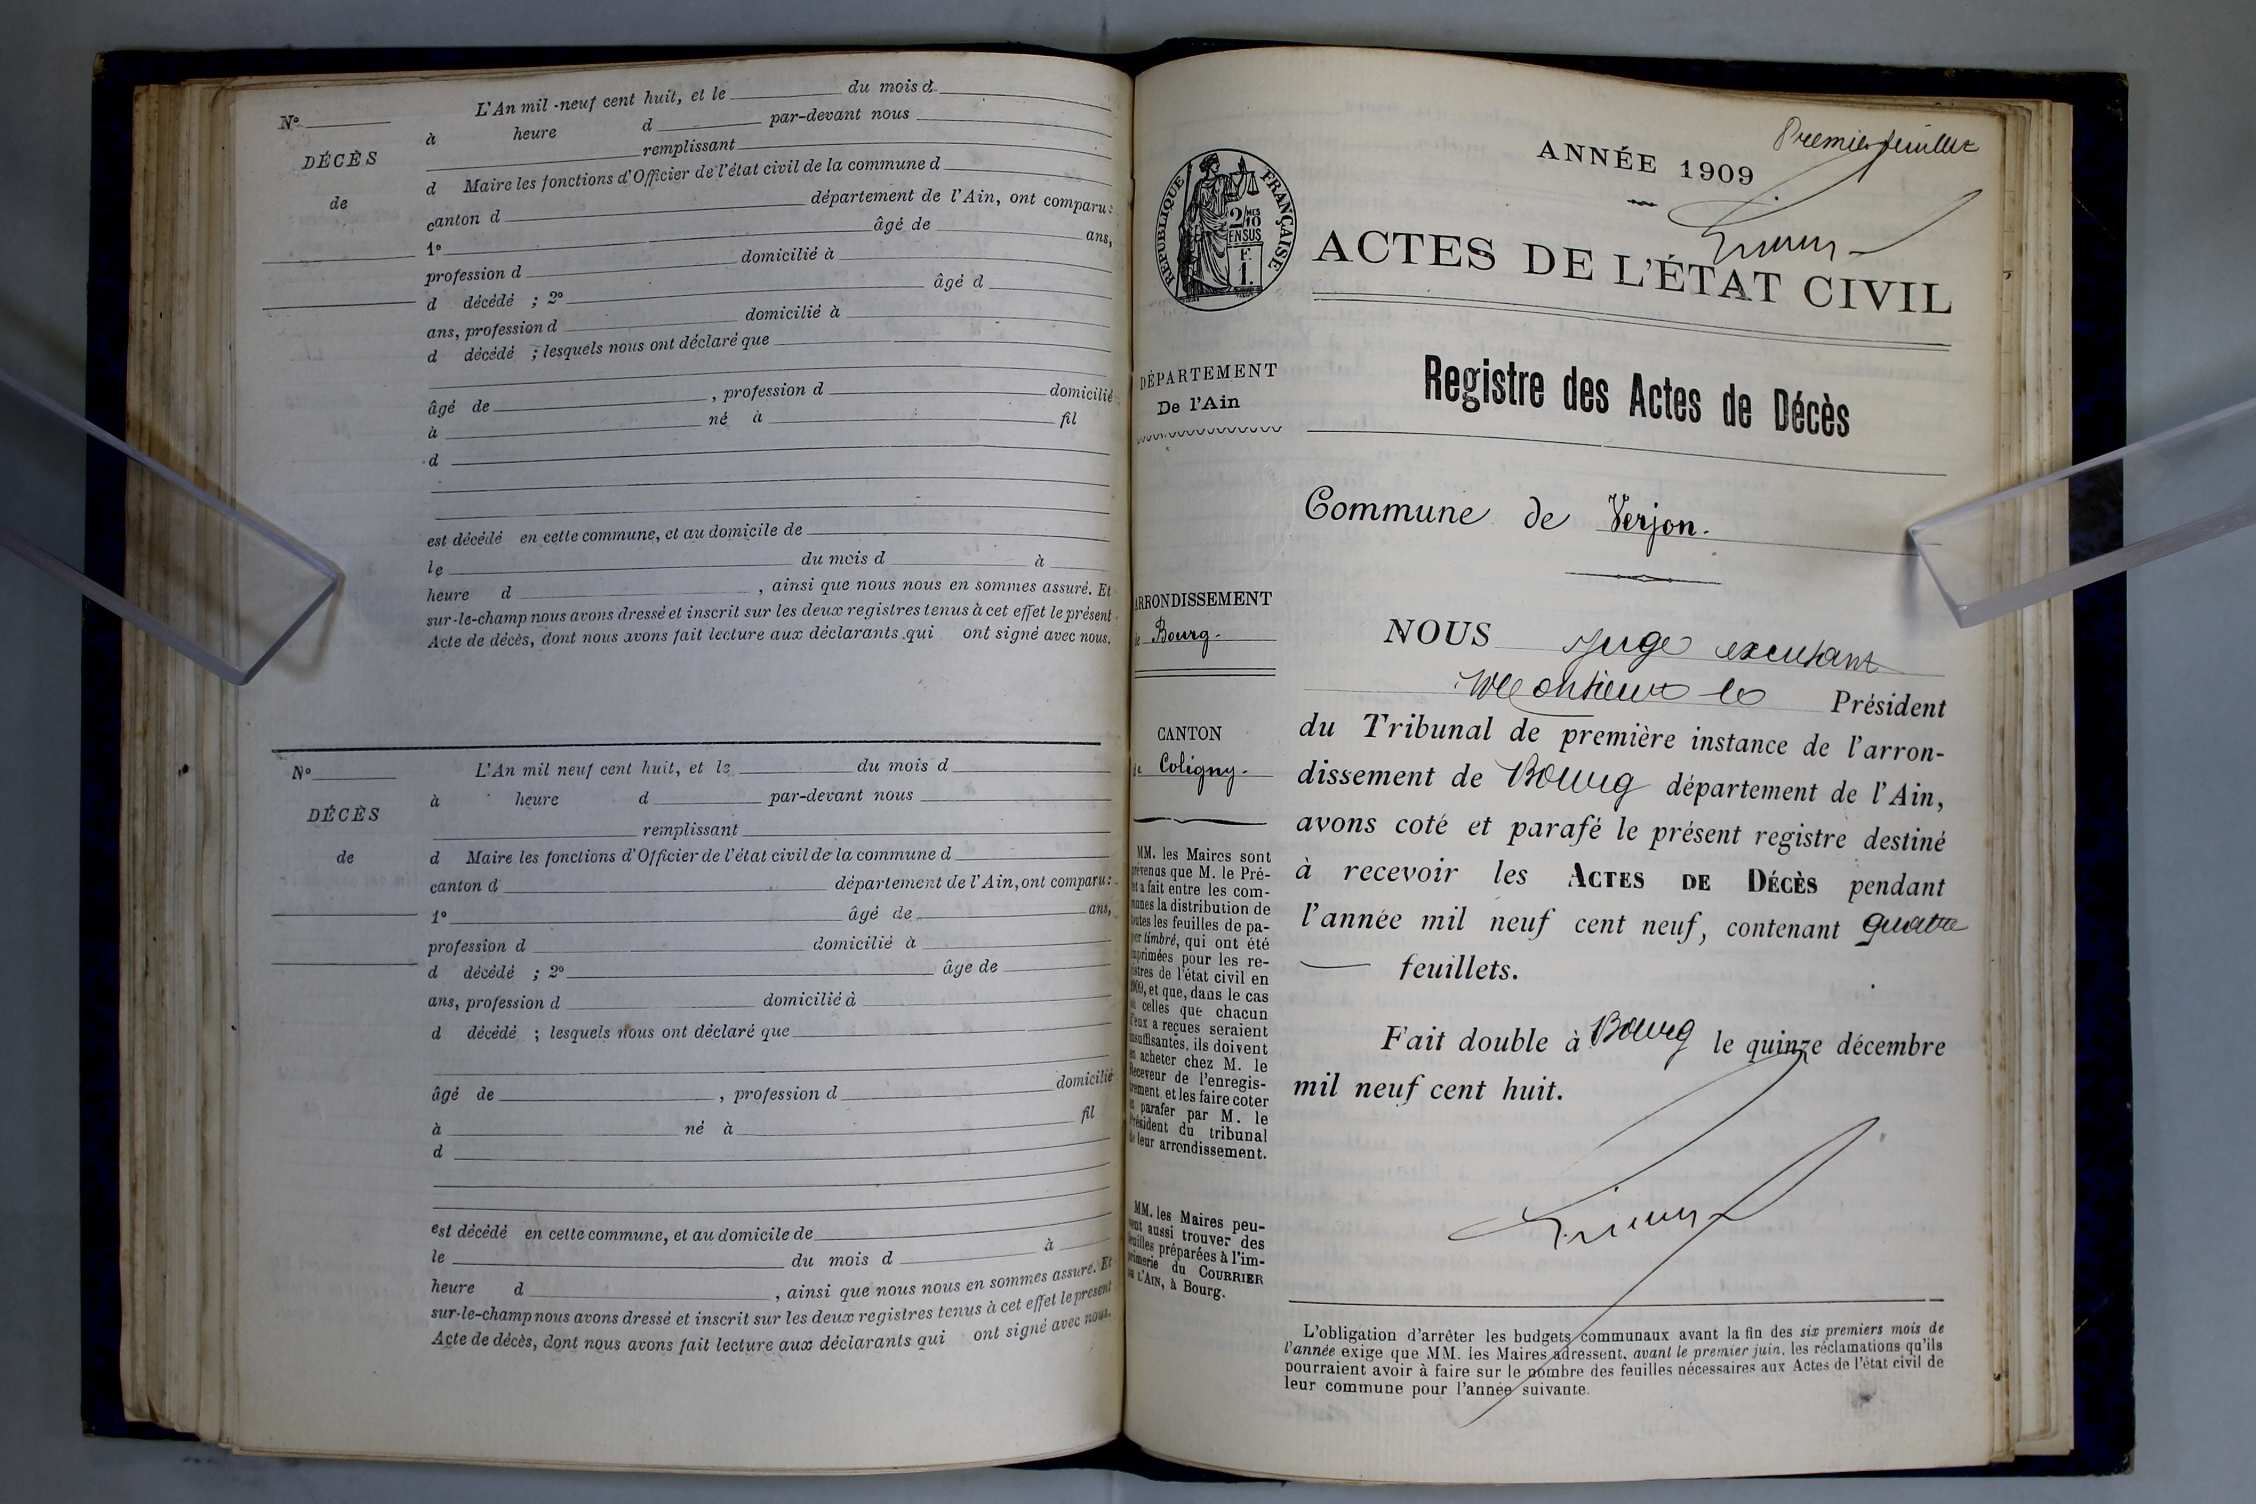 N°
DÉCÈS
de
L'An mil neuf cent huit, et le du mois d
à heure d par-devant nous
remplissant
d Maire les fonctions d'Officier de l'état civil de la commune d
canton d département de l'Ain, ont comparu :
1° âgé de ans,
profession d domicilié à
d décédé ; 2° âgé d
ans, profession d domicilié à
d décédé ; lesquels nous ont déclaré que
âgé de , profession d domicilié
à né à fil
d
est décédé en cette commune, et au domicile de
le du mois d à
heure d , ainsi que nous nous en sommes assuré. Et
sur-le-champ nous avons dressé et inscrit sur les deux registres tenus à cet effet le présent
Acte de décès, dont nous avons fait lecture aux déclarants qui ont signé avec nous.
N°
DÉCÈS
de
L'An mil neuf cent huit, et le du mois d
à heure d par-devant nous
remplissant
d Maire les fonctions d'Officier de l'état civil de la commune d
canton d département de l'Ain, ont comparu :
1° âgé de ans,
profession d domicilié à
d décédé ; 2° âge de
ans, profession d domicilié à
d décédé ; lesquels nous ont déclaré que
âgé de , profession d domicilié
à né à fil
d
est décédé en cette commune, et au domicile de
le du mois d à
heure d , ainsi que nous nous en sommes assuré. Et
sur-le-champ nous avons dressé et inscrit sur les deux registres tenus à cet effet le présent
Acte de décès, dont nous avons fait lecture aux déclarants qui ont signé avec nous.
Premier feuillet
ANNÉE 1909
RÉPUBLIQUE FRANÇAISE
2/10 MES
EN SUS
F.
1.
ACTES DE L'ÉTAT CIVIL
DÉPARTEMENT
De l'Ain
ARRONDISSEMENT
de Bourg.
CANTON
de Coligny.
MM. les Maires sont
prévenus que M. le Pré-
fet a fait entre les com-
munes la distribution de
toutes les feuilles de pa-
pier timbré, qui ont été
imprimées pour les re-
gistres de l'état civil en
1909, et que, dans le cas
où celles que chacun
d'eux a reçues seraient
insuffisantes, ils doivent
en acheter chez M. le
Receveur de l'enregis-
trement et les faire coter
et parafer par M. le
Président du tribunal
de leur arrondissement.
MM. les Maires peu-
vent aussi trouver des
feuilles préparées à l'im-
primerie du COURRIER
DE L'AIN, à Bourg.
Registre des Actes de Décès
Commune de Verjon.
NOUS Juge excusant
Monsieur le Président
du Tribunal de première instance de l'arron-
dissement de Bourg département de l'Ain,
avons coté et parafé le présent registre destiné
à recevoir les ACTES DE DÉCÈS pendant
l'année mil neuf cent neuf, contenant quatre
feuillets.
Fait double à Bourg le quinze décembre
mil neuf cent huit.
L'obligation d'arrêter les budgets communaux avant la fin des six premiers mois de
l'année exige que MM. les Maires adressent, avant le premier juin, les réclamations qu'ils
pourraient avoir à faire sur le nombre des feuilles nécessaires aux Actes de l'état civil de
leur commune pour l'année suivante.